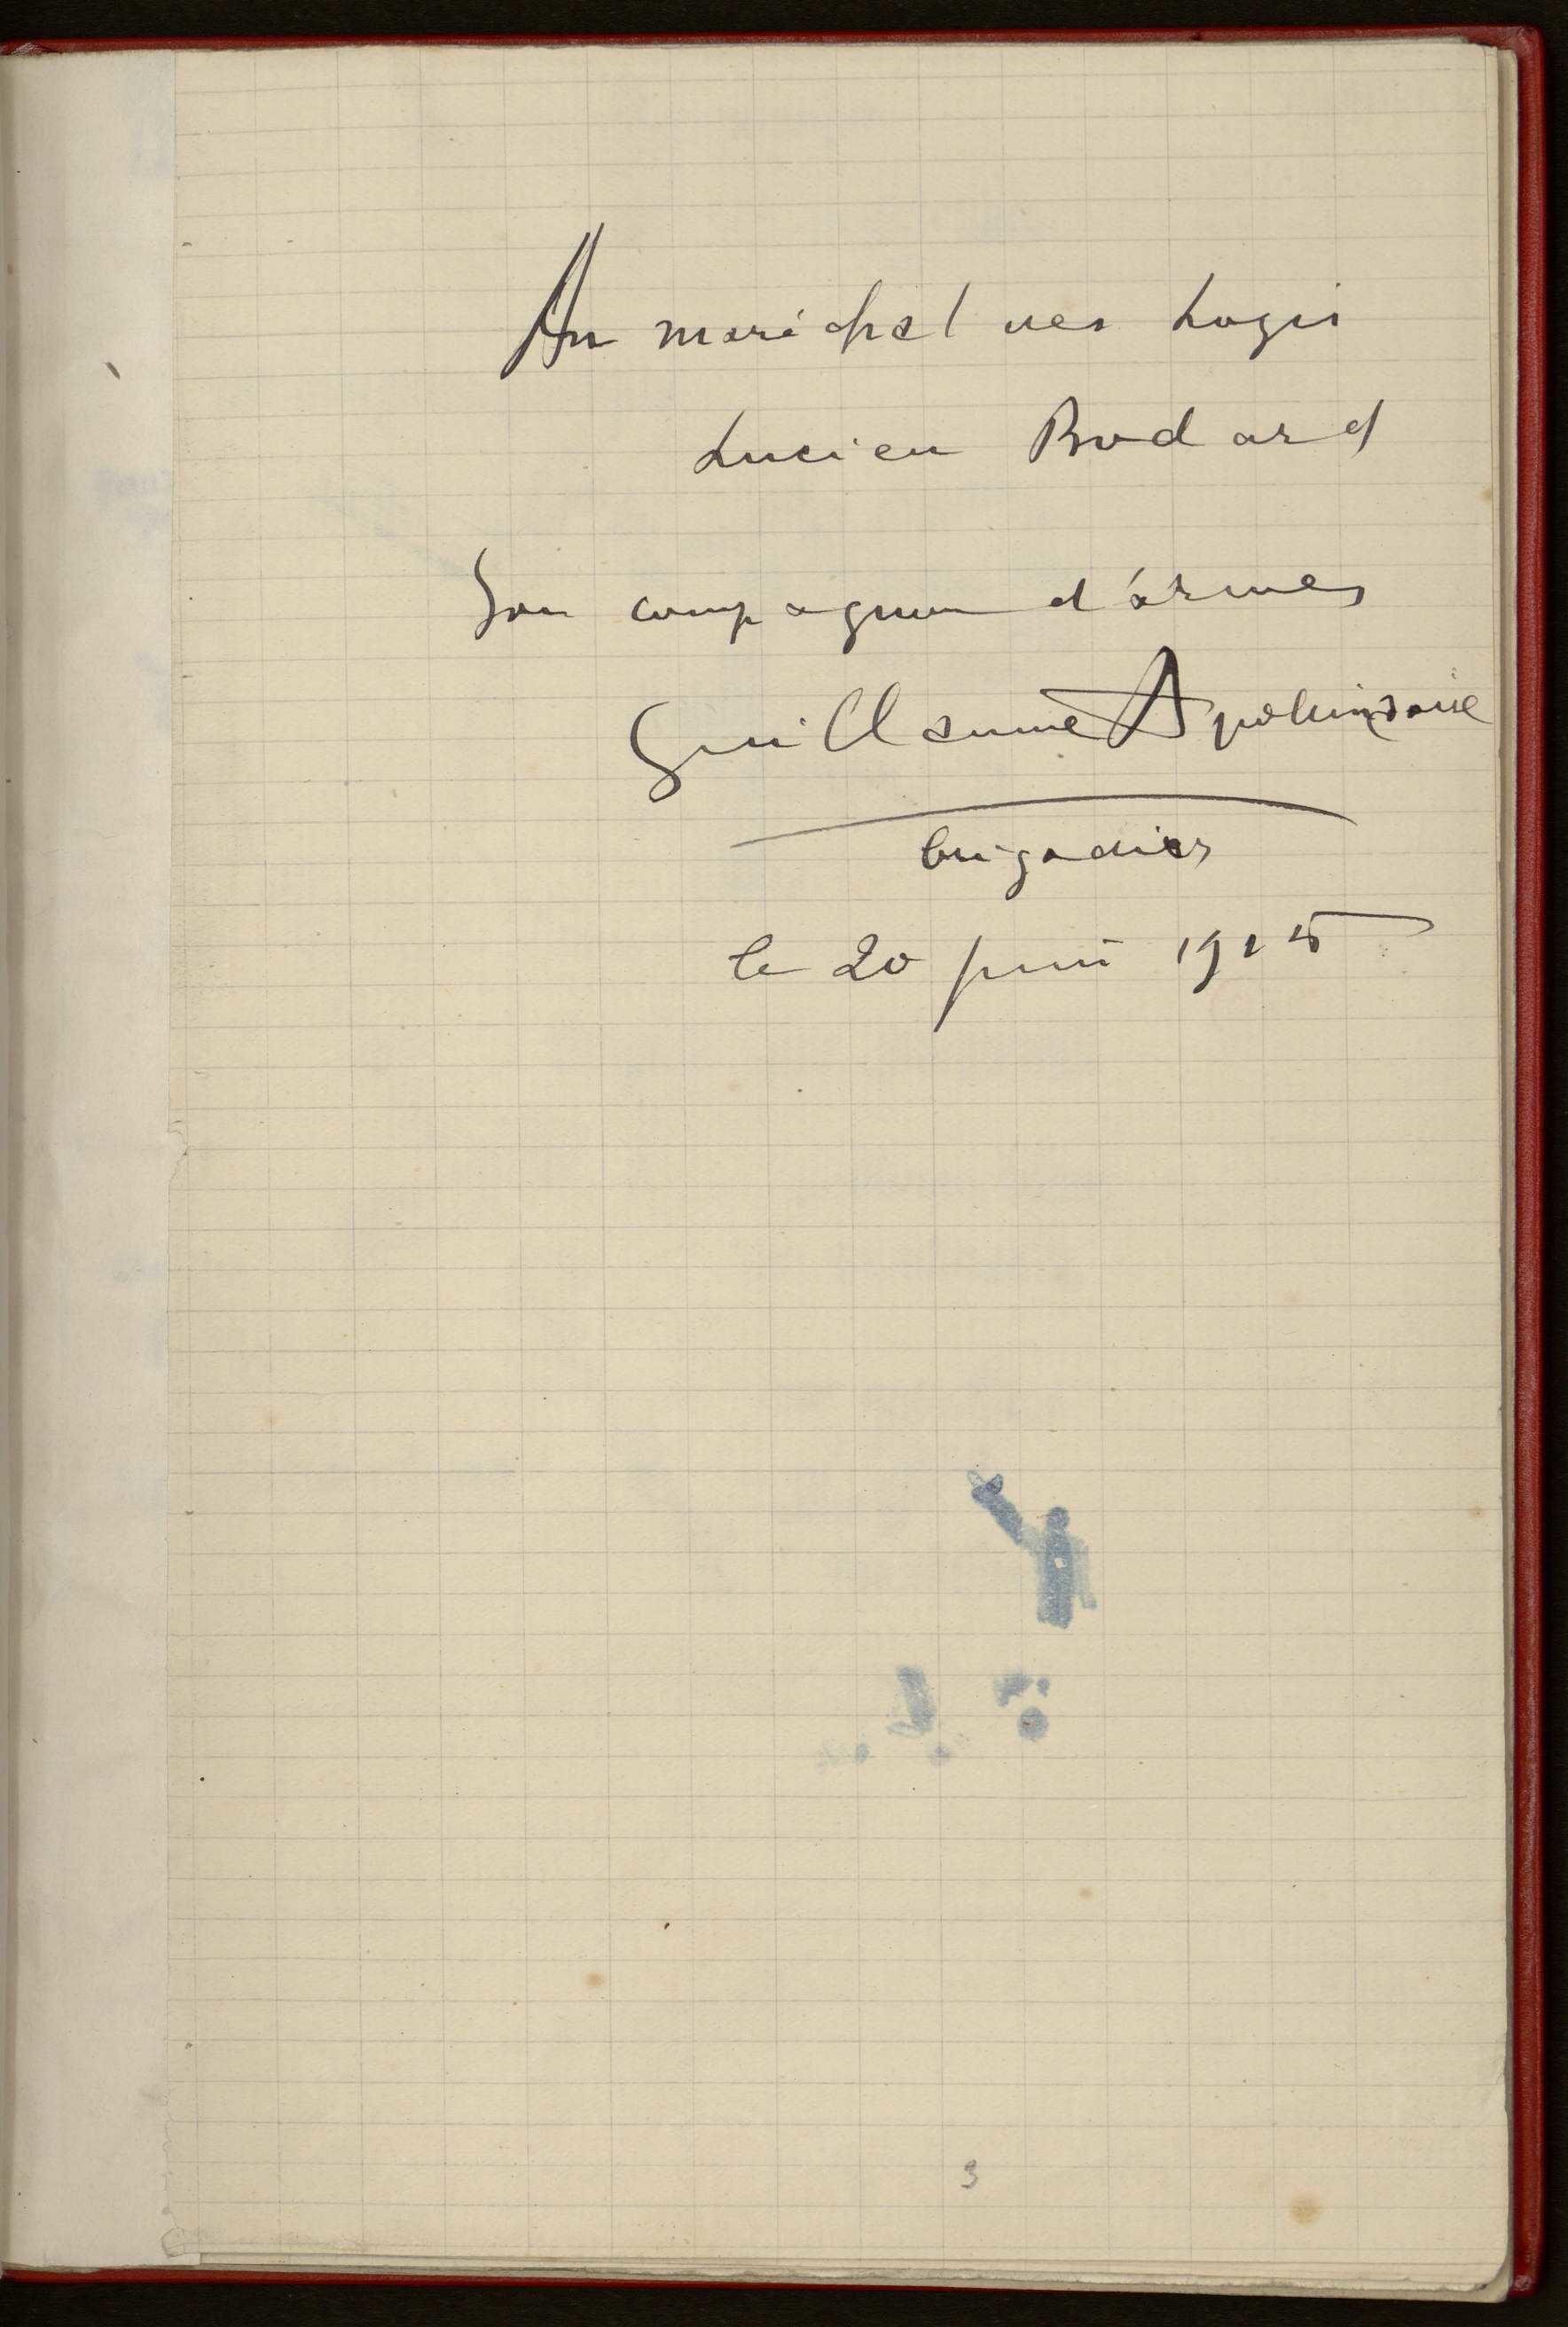 Au maréchal des Logis
Lucien Bodard
Son compagnon d'armes
Guillaume Apollinaire
brigadier
le 20 juin 1915
3